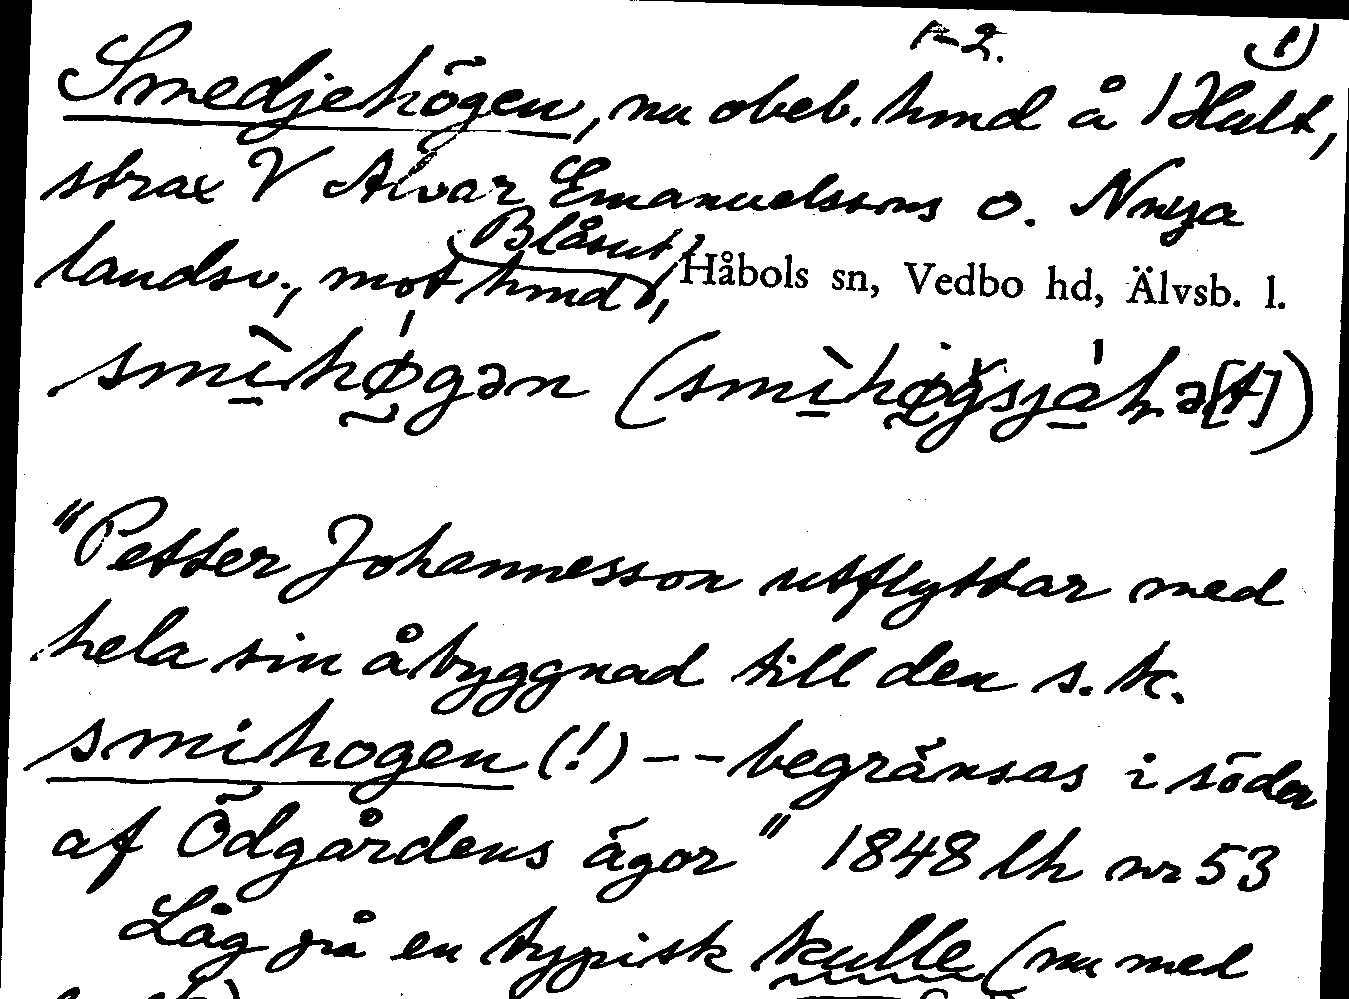 1-2. 1)
Smedjehögen, nu obeb. hmd å 1 Hult,
strax V Alvar Emanuelssons o. N nya
landsv., mot hmd (Blåsut),
Håbols sn, Vedbo hd, Älvsb. l.
smìhǿgən (smìhøgsjálət[t])
"Petter Johannesson utflyttar med
hela sin åbyggnad till den s.k.
smihogen (!) -- begränsas i söder
af Ödgårdens ägor" 1848 lh nr 53
Låg på en typisk kulle (nu med